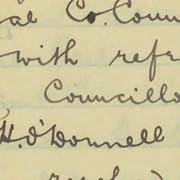 al Co. Coun
with refr
Councillo
H. O'Donnell